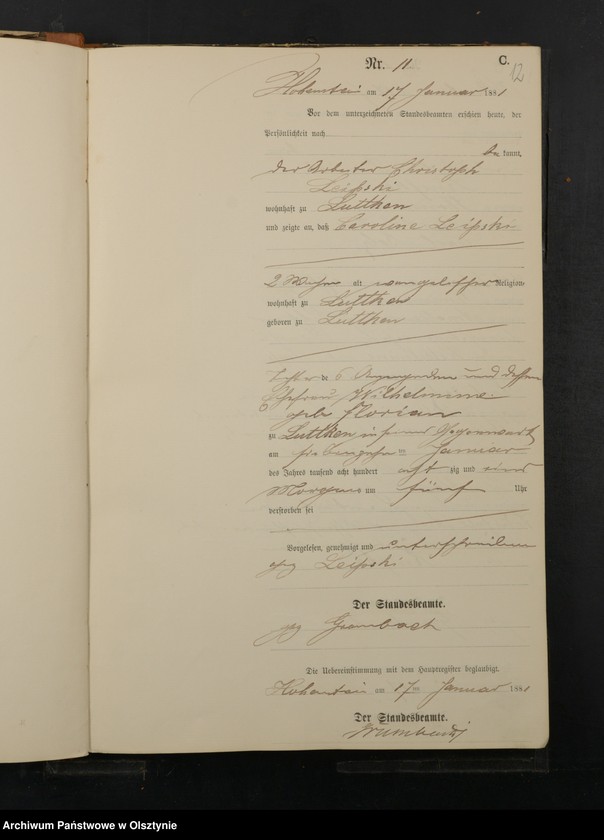 Nr. 11 C.
12
Hohenstein am 17 Januar 1881
Vor dem unterzeichneten Standesbeamten erschien heute, der
Persönlichkeit nach
kannt,
der Arbeiter Christoph
Leipski
wohnhaft zu Luttken
und zeigte an, daß Caroline Leipski
2 alt evangelischer Religion,
wohnhaft zu Luttken
geboren zu Luttken
Tochter des und dessen
Ehefrau Wilhelmine
geb Florian
zu Luttken in seiner Gegenwart
am siebenzehn ten Januar
des Jahres tausend acht hundert acht zig und eins
Morgens um fünf Uhr
verstorben sei
Vorgelesen, genehmigt und unterschrieben
gez Leipski
Der Standesbeamte.
gez Grumbach
Die Uebereinstimmung mit dem Hauptregister beglaubigt.
Hohenstein am 17ten Januar 1881
Der Standesbeamte.
Grumbach
Archiwum Państwowe w Olsztynie